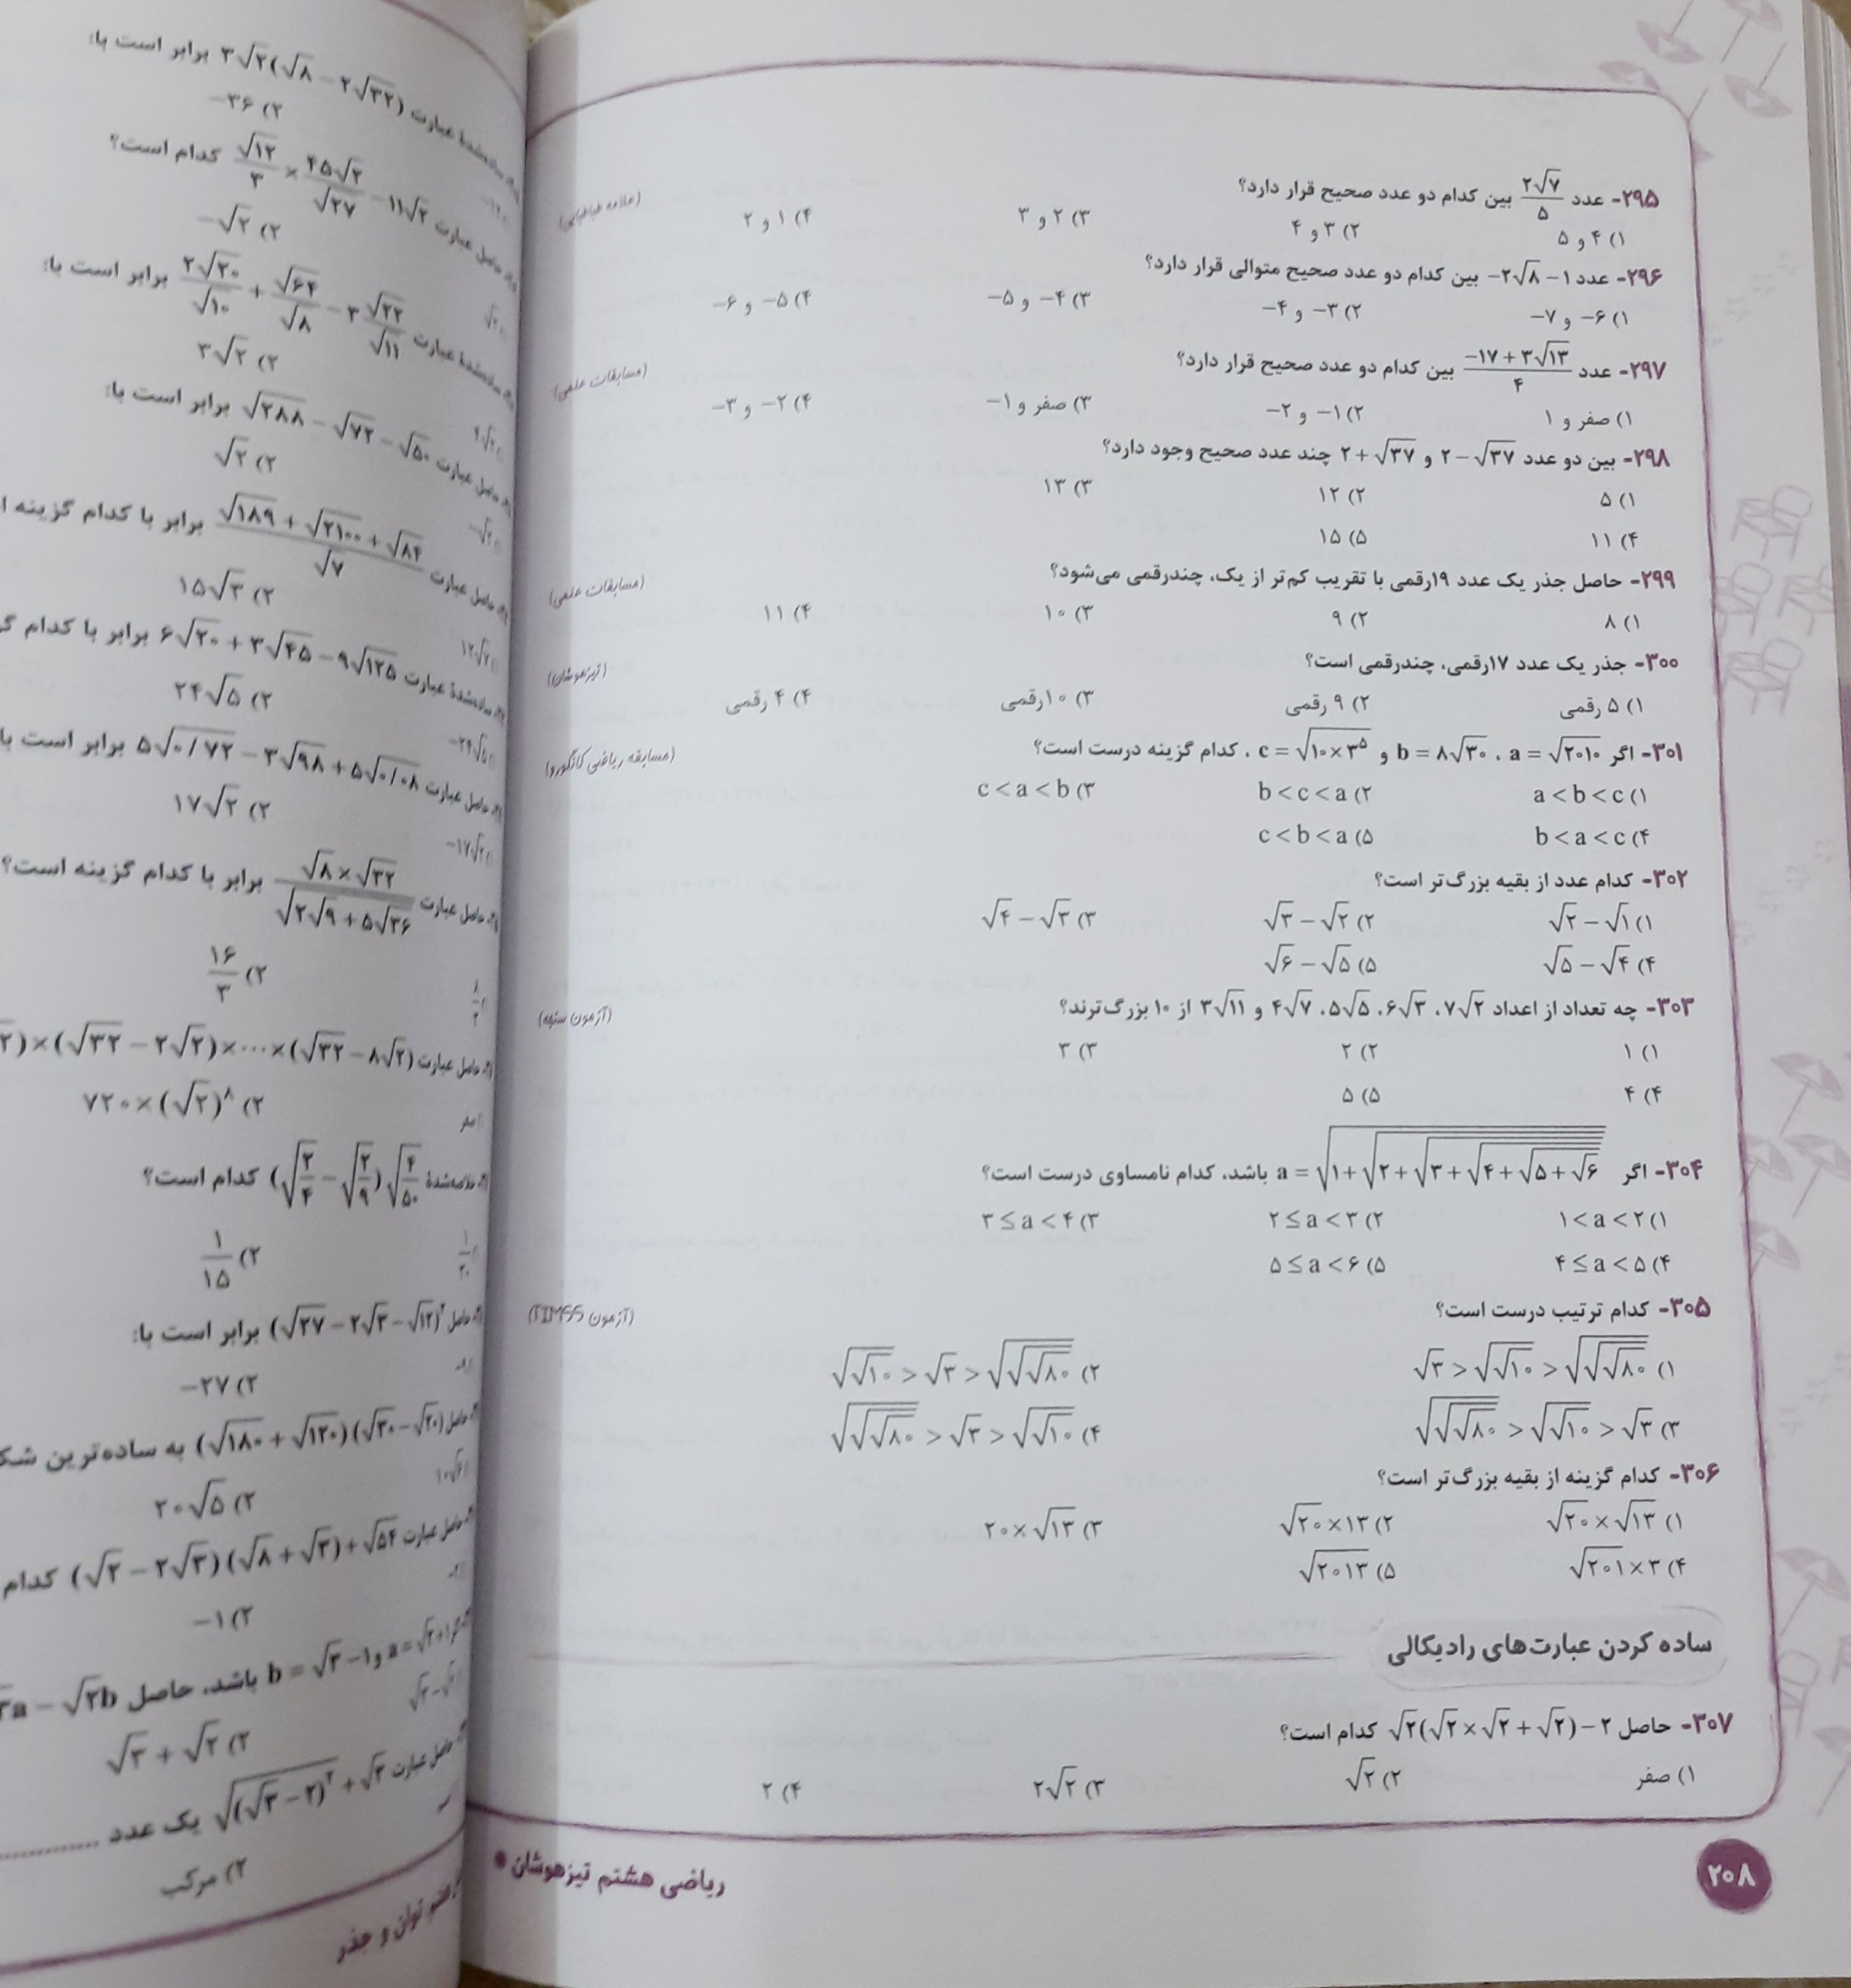 ۲۹۵- عدد ۲√۷/۵ بین کدام دو عدد صحیح قرار دارد؟ (علامه طباطبایی)
۱) ۴ و ۵ ۲) ۳ و ۴ ۳) ۲ و ۳ ۴) ۱ و ۲
۲۹۶- عدد -۲√۸ - ۱ بین کدام دو عدد صحیح متوالی قرار دارد؟
۱) -۶ و -۷ ۲) -۳ و -۴ ۳) -۴ و -۵ ۴) -۵ و -۶
۲۹۷- عدد (-۱۷ + ۳√۱۳)/۴ بین کدام دو عدد صحیح قرار دارد؟ (مسابقات علمی)
۱) صفر و ۱ ۲) -۱ و -۲ ۳) صفر و -۱ ۴) -۲ و -۳
۲۹۸- بین دو عدد ۲ - √۳۷ و ۲ + √۳۷ چند عدد صحیح وجود دارد؟
۱) ۵ ۲) ۱۲ ۳) ۱۳
۴) ۱۱ ۵) ۱۵
۲۹۹- حاصل جذر یک عدد ۱۹رقمی با تقریب کم‌تر از یک، چندرقمی می‌شود؟ (مسابقات علمی)
۱) ۸ ۲) ۹ ۳) ۱۰ ۴) ۱۱
۳۰۰- جذر یک عدد ۱۷رقمی، چندرقمی است؟ (تیزهوشان)
۱) ۵ رقمی ۲) ۹ رقمی ۳) ۱۰رقمی ۴) ۴ رقمی
۳۰۱- اگر a = √۲۰۱۰ ، b = ۸√۳۰ و c = √(۱۰×۳⁵) ، کدام گزینه درست است؟ (مسابقه ریاضی کانگورو)
۱) a < b < c ۲) b < c < a ۳) c < a < b
۴) b < a < c ۵) c < b < a
۳۰۲- کدام عدد از بقیه بزرگ‌تر است؟
۱) √۲ - √۱ ۲) √۳ - √۲ ۳) √۴ - √۳
۴) √۵ - √۴ ۵) √۶ - √۵
۳۰۳- چه تعداد از اعداد ۷√۲، ۶√۳، ۵√۵، ۴√۷ و ۳√۱۱ از ۱۰ بزرگ‌ترند؟
۱) ۱ ۲) ۲ ۳) ۳
۴) ۴ ۵) ۵
۳۰۴- اگر a = √(۱+√(۲+√(۳+√(۴+√(۵+√۶))))) باشد، کدام نامساوی درست است؟
۱) ۱ < a < ۲ ۲) ۲ ≤ a < ۳ ۳) ۳ ≤ a < ۴
۴) ۴ ≤ a < ۵ ۵) ۵ ≤ a < ۶
۳۰۵- کدام ترتیب درست است؟ (آزمون TIMSS)
۱) √۳ > √√۱۰ > √√√۸۰ ۲) √√۱۰ > √۳ > √√√۸۰
۳) √√√۸۰ > √√۱۰ > √۳ ۴) √√√۸۰ > √۳ > √√۱۰
۳۰۶- کدام گزینه از بقیه بزرگ‌تر است؟
۱) √۲۰ × √۱۳ ۲) √۲۰ × ۱۳ ۳) ۲۰ × √۱۳
۴) √۲۰۱ × ۳ ۵) √۲۰۱۳
ساده کردن عبارت‌های رادیکالی
۳۰۷- حاصل √۲(√۲ × √۲ + √۲) - ۲ کدام است؟
۱) صفر ۲) √۲ ۳) ۲√۲ ۴) ۲
۲۰۸
ریاضی هشتم تیزهوشان
عبارت ۳√۲(√۸ - ۲√۳۲) برابر است با:
۲) -۳۶
حاصل عبارت ۱۱√۲ - ۴۵√۲/√۲۷ × √۱۲/۳ کدام است؟
۲) -√۲
عبارت ۲√۲۰/√۱۰ + √۶۴/√۸ - ۳√۲۲/√۱۱ برابر است با:
۲) ۳√۲
حاصل عبارت √۲۸۸ - √۷۲ - √۵۰ برابر است با:
۲) √۲
حاصل عبارت (√۱۸۹ + √۲۱۰۰ + √۸۴)/√۷ برابر با کدام گزینه
۲) ۱۵√۳
عبارت ۶√۲۰ + ۳√۴۵ - ۹√۱۲۵ برابر با کدام
۲) ۲۴√۵
حاصل عبارت ۵√۰/۷۲ - ۳√۹۸ + ۵√۰/۰۸ برابر است
۲) ۱۷√۲
حاصل عبارت (√۸ × √۳۲)/√(۲√۹ + ۵√۳۶) برابر با کدام گزینه است؟
۲) ۱۶/۳
حاصل عبارت (√۳۲ - ۸√۲) × ⋯ × (√۳۲ - ۲√۲) ×
۲) ۷۲۰ × (√۲)⁸
√(۴/۵۰)(√(۲/۹) - √(۲/۴)) کدام است؟
۲) ۱/۱۵
حاصل (√۲۷ - ۲√۳ - √۱۲) برابر است با:
۲) -۲۷
حاصل (√۳۰ - √۲۰)(√۱۲۰ + √۱۸۰) به ساده‌ترین
۲) ۲۰√۵
حاصل عبارت (√۲ - ۲√۳)(√۸ + √۳) + √۵۴ کدام
۲) -۱
b = √۳ - ۱ باشد، حاصل
۲) √۳ + √۲
حاصل عبارت √(√۳ - ۲)² + √۳ یک عدد ............
۲) مرکب
توان و جذر